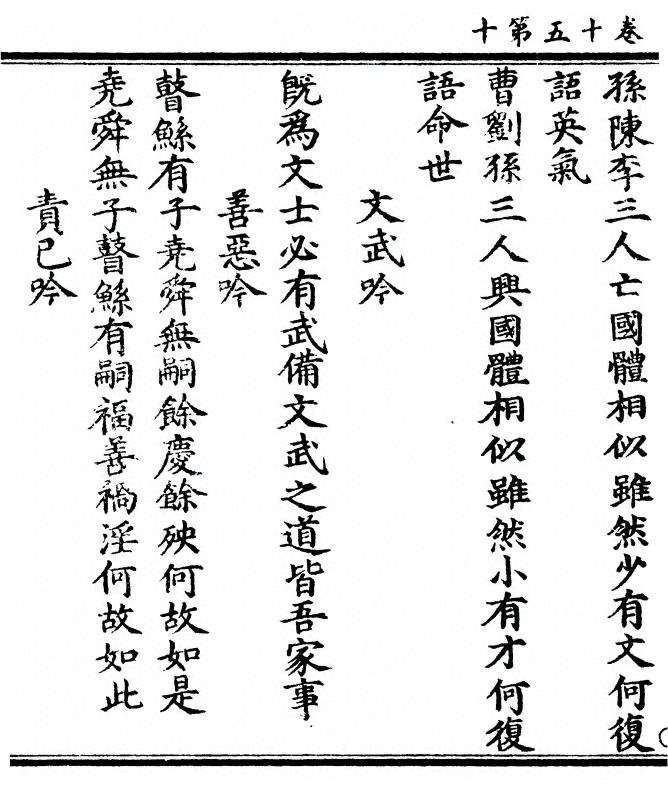 卷十五第十
孫陳李三人亡國體相似雖然少有文何復
語英氣
曹劉孫三人興國體相似雖然小有才何復
語命世
文武吟
旣爲文士必有武備文武之道皆吾家事
善惡吟
瞽鯀有子堯舜無嗣餘慶餘殃何故如是
堯舜無子瞽鯀有嗣福善禍淫何故如此
責已吟